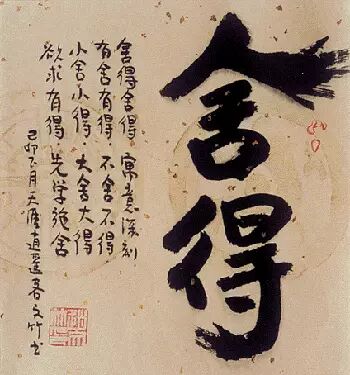 舍得
舍得舍得·寓意深刻
有舍有得·不舍不得
小舍小得·大舍大得
欲求有得·先学施舍
己卯 月天涯逍遥客文竹书